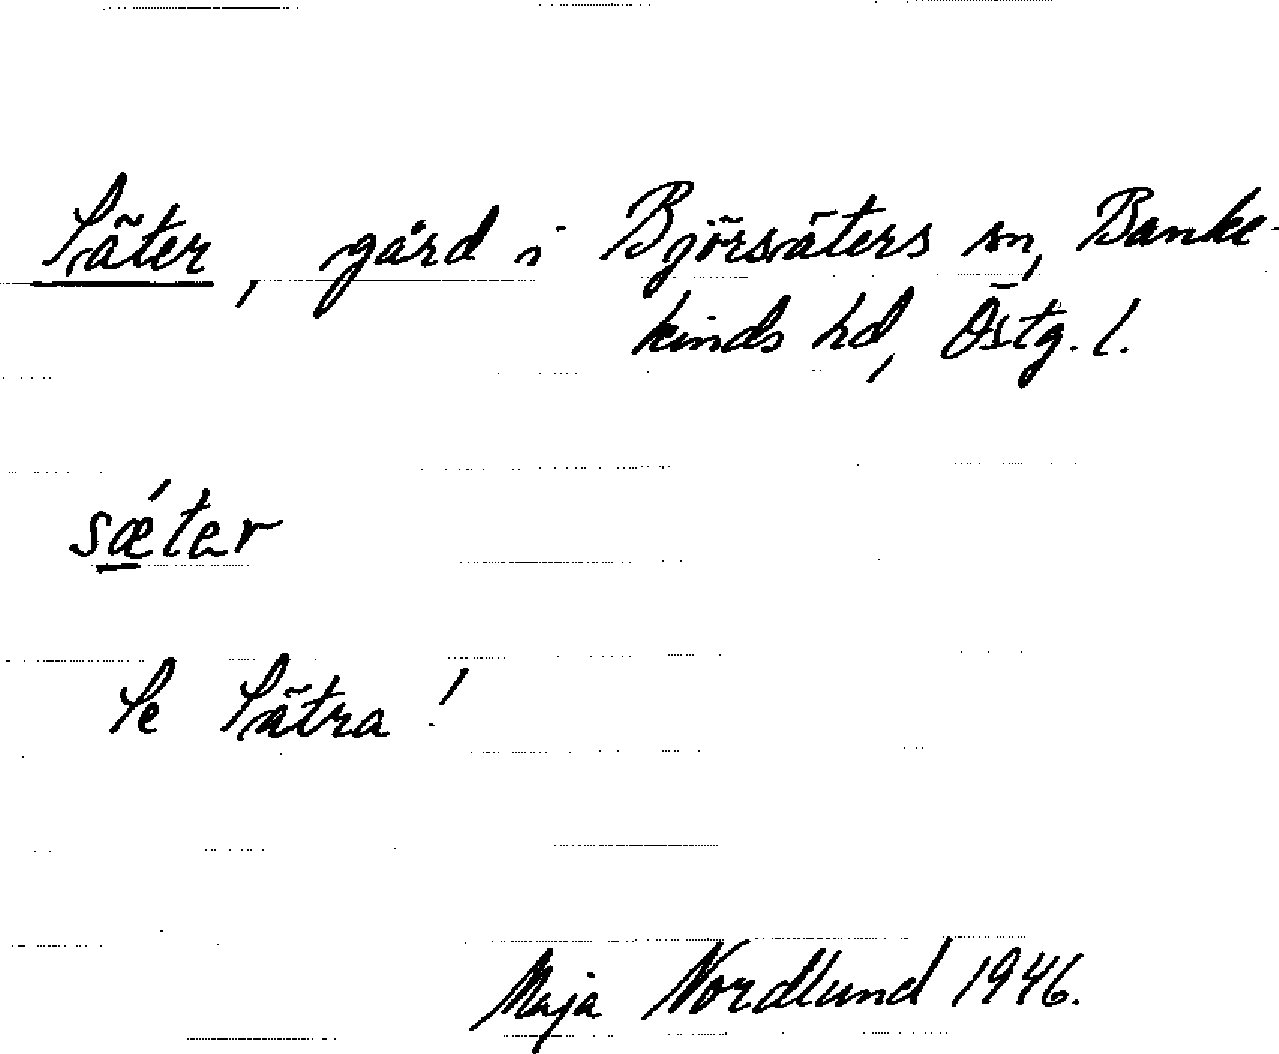 Säter, gård i Björsäters sn, Banke-
kinds hd, Östg. l.
sǽter
Se Sätra!
Maja Nordlund 1946.